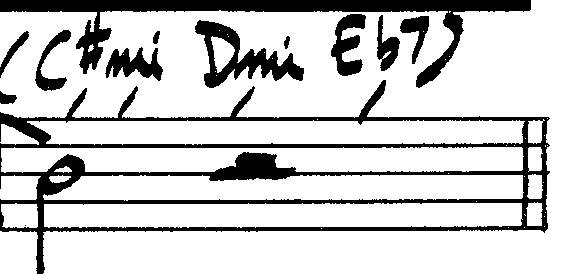 (C#mi Dmi Eb7)